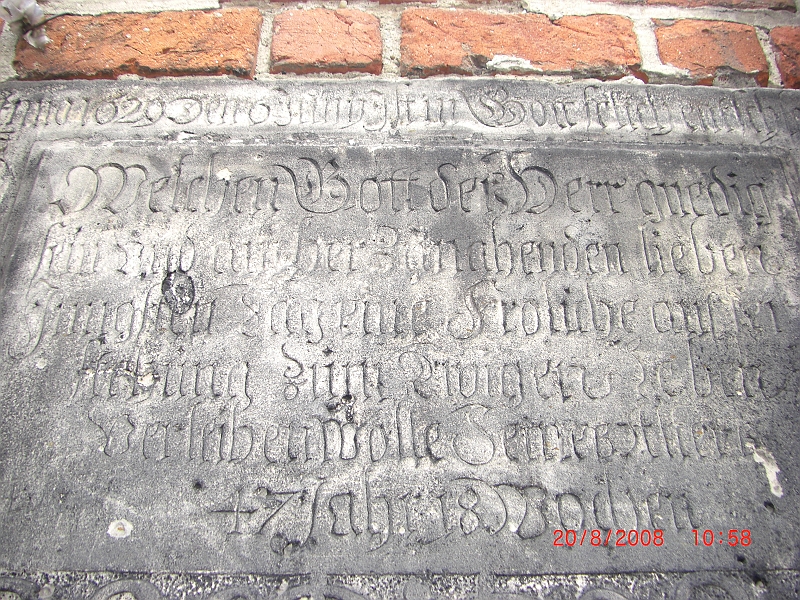 Anno 1629 Den 6 Juny Ist in Gott selich entsch
Welchen Gott der Herr gnedig
sein und auf der Zunahenden lieben
Jungsten Tag eine Froliche aufer
stehung Zum Ewigen Leben
Verleihen wolle Seines Alters
47 Jahr 18 Wochen
20/8/2008 10:58